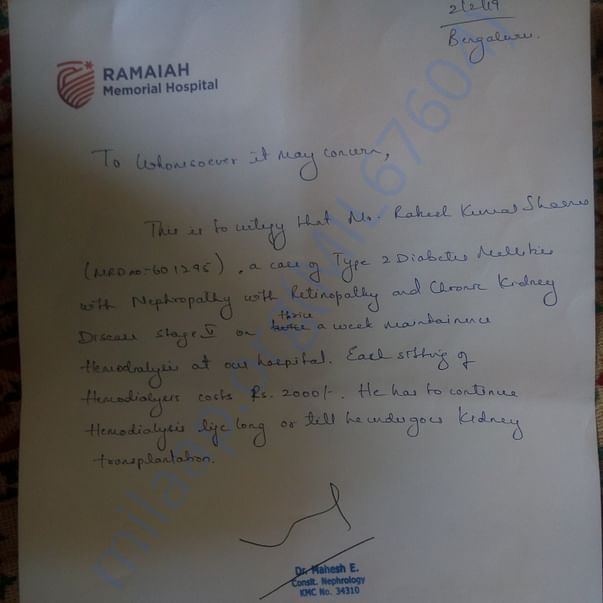 2/2/19
Bengaluru.
RAMAIAH
Memorial Hospital
To Whomsoever it may concern,
This is to certify that Mr. Rakesh Kumar Sharma
(MRD no-601295), a case of Type 2 Diabetes Mellitus
with Nephropathy with Retinopathy and Chronic Kidney
thrice
Disease stage V on twice a week maintainence
Hemodialysis at our hospital. Each sitting of
Hemodialysis costs Rs. 2000/-. He has to continue
Hemodialysis life long or till he undergoes Kidney
transplantation.
Dr. Mahesh E.
Conslt. Nephrology
KMC No. 34310